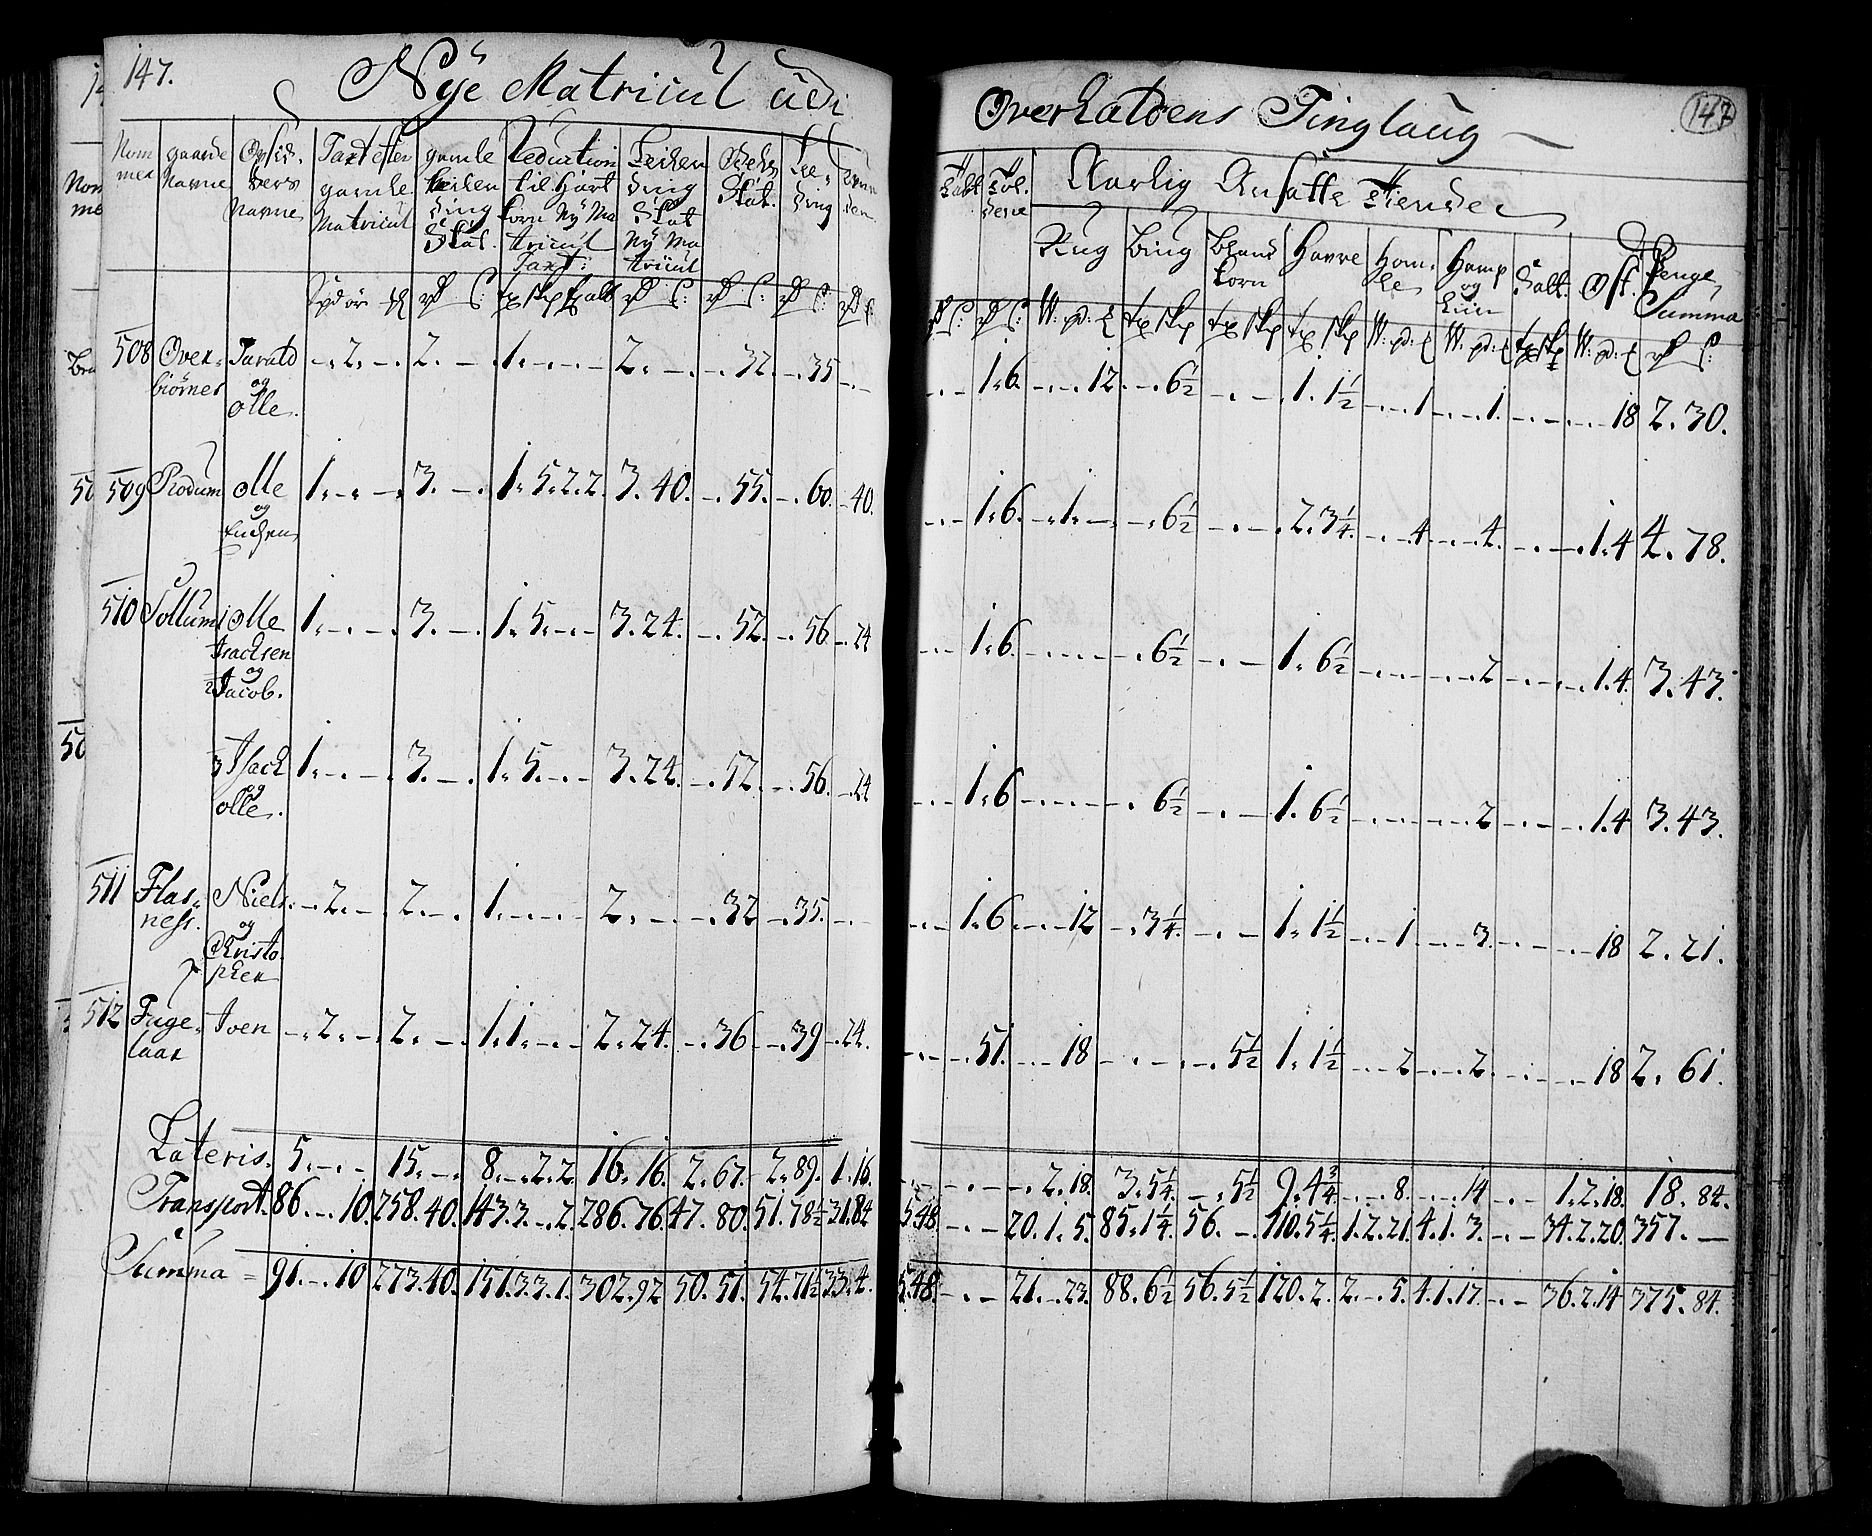 147.
Nÿe Matricul udi
Overhaldens Tinglaug
147
Nom mer | gaarde Navne | Opsid- ders Navne | Taxt efter gamle Matricul | gamle Leilen ding Skat. | Reduction til Hart korn Nÿ Ma tricul Taxt: | Leilen ding Skat Nÿ Ma tricul | Skat. | Lee- ding
Aarlig Ansatte Tiender
Rug | Bÿug | Bland korn | Havre | Hom- le | Hamp og Liin | Salt. | Ost. | Penge Summa
508 Over- biörnes Tarald og Olle. -.2.-. 2.-. 1.-.-.- 2.-. -.32. -.35 -.-
-.- 1.6. -.-.12. -.6½ -.- 1.1½ -.-.1 -.-.1. -.- -.-.18 2.30.
509 Rodum Olle og 1.-.- 3.-. 1.5.2.2. 3.40. -.55. -.60. -40.
-.- 1.6. -.1.- -.6½ -.- 2.3¼. -.-.4. -.-.4. -.- -.1.4 4.78.
510 Sollum Olle Isachsen og ½ Jacob. 1.-.- 3.-. 1.5.-.- 3.24. -.52. -.56 -.24
-.- 1.6. -.-.- -.6½ -.- 1.6½ -.-.- -.-.2 -.- -.1.4. 3.43.
Isach og olle. 1.-.- 3.-. 1.5.-.- 3.24. -.52. -.56. -.24
-.- 1.6 -.-.- -.6½ -.- 1.6½ -.-.- -.-.2 -.- -.1.4 3.43.
511 Flas- ness. Niels og Christo- pher -.2.- 2.-. 1.-.-.- 2.-. -.32 -.35. -.-
-.- 1.6 -.-.12 -.3¼. -.- 1.1½ -.-.1 -.-.3. -.- -.-.18 2.21.
512 Fuge- laar Iven -.2.- 2.-. 1.1.-.- 2.24. -.36 -.39 -.24.
-.- -.51. -.-.18 -.- -.5½ 1.1½ -.-.2 -.-.2. -.- -.-.18 2.61.
Lateris. 5.-.- 15.-. 8.-.2.2 16.16. 2.67. 2.89. 1.16.
-.- -.- -.2.18. 3.5¼ -.5½ 9.4¾ -.-.8. -.-.14 -.- 1.2.18. 18.84.
Transport. 86.-.10. 258.40. 143.3.-.2. 286.76. 47.80. 51.78½ 31.84
5.48. -.- 20.1.5. 85.1¼ 56.-. 110.5¼. 1.2.21. 4.1.3. -.- 34.2.20. 357.-
Summa = 91.-.10 273.40. 151.3.3.1. 302.92 50.51. 54.71½ 33.4.
5.48. -.- 21.-.23. 88.6½ 56.5½ 120.2. 2.-.5. 4.1.17. -.- 36.2.14 375.84.